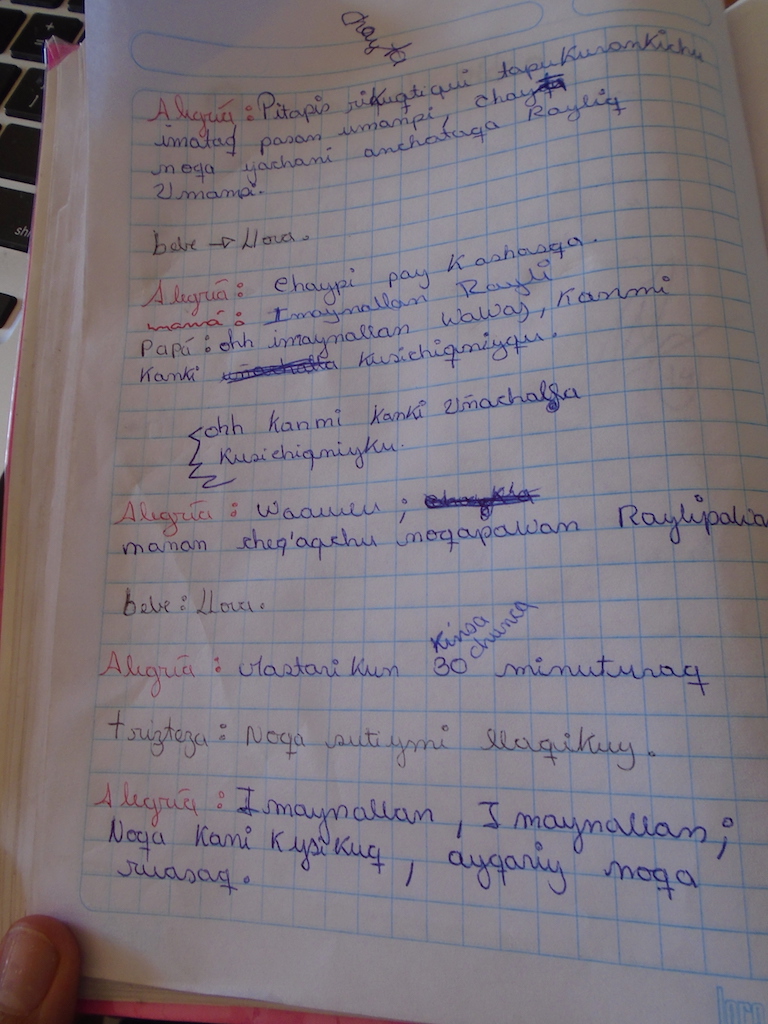 chayta
Alegría: Pitapis rikuqtiqui tapukurankichu
imataq pasan umanpi, chay
noqa yachani anchataqa Rayliq
Umama.
bebe → llora.
Alegría: Chaypi pay Kashasqa.
mamá: Imaynallan Rayli
Papá: ohh imaynallan wawaj, Kanmi
Kanki kusichiqniyqu.
ohh Kanmi Kanki Uñachalla
Kusichiqniyku.
Alegría: Waauuu;
manan cheq'aqchu noqapawan Raylipawa
bebe: llora.
Kinsa chunca
Alegría: 30 minuturaq
trizteza: Noqa sutiymi llaqikuy.
Alegría: Imaynallan, Imaynallan;
Noqa Kani Kusikuq, ayqariy noqa
ruasaq.